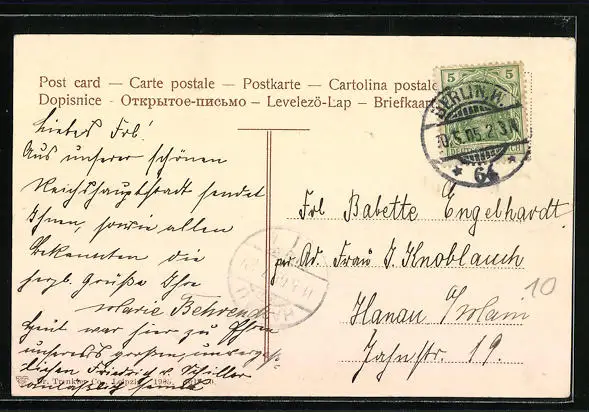 Post card — Carte postale — Postkarte — Cartolina postale
Dopisnice - Открытое-письмо – Levelezö-Lap – Briefkaart
5 5
BERLIN.W.
10.5.05.2-3N
* 64 *
Liebes Frl!
Aus unserer schönen
Reichshauptstadt sendet
Ihnen, sowie allen
Bekannten die
herzl. Grüße Ihre
Marie Behrend
Heut war hier zu Ehren
unseres großen, unvergeß-
lichen Friedrich v. Schiller
Frl Babette Engelhardt
per Ad. Frau J. Knoblauch
Hanau a/Main
Jahnstr. 19.
10
Dr. Trenkler Co., Leipzig. 1905.